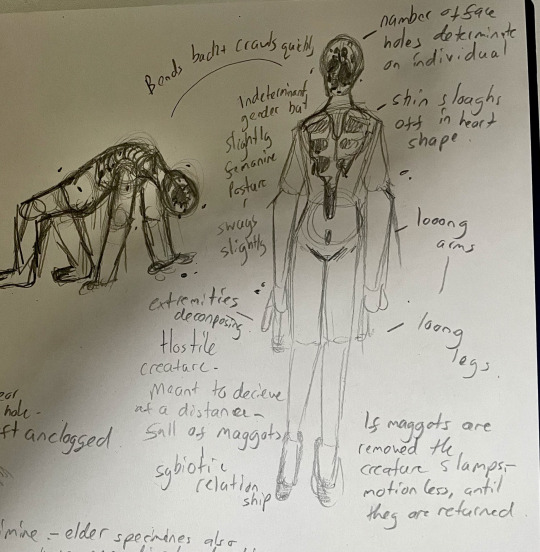 number of face
holes determinate
on individual
Bends back + crawls quickly
Indeterminant
gender but
slightly
femanine
Posture
sways
slightly
skin sloughs
off in heart
shape.
looong
arms
loong
legs.
extremities
decomposing
Hostile
creature.
Meant to decieve
at a distance -
full of maggots
sybiotic
relation
ship
If maggots are
removed the
creature slumps -
motionless, until
they are returned
hole -
unclogged
- elder specimens also